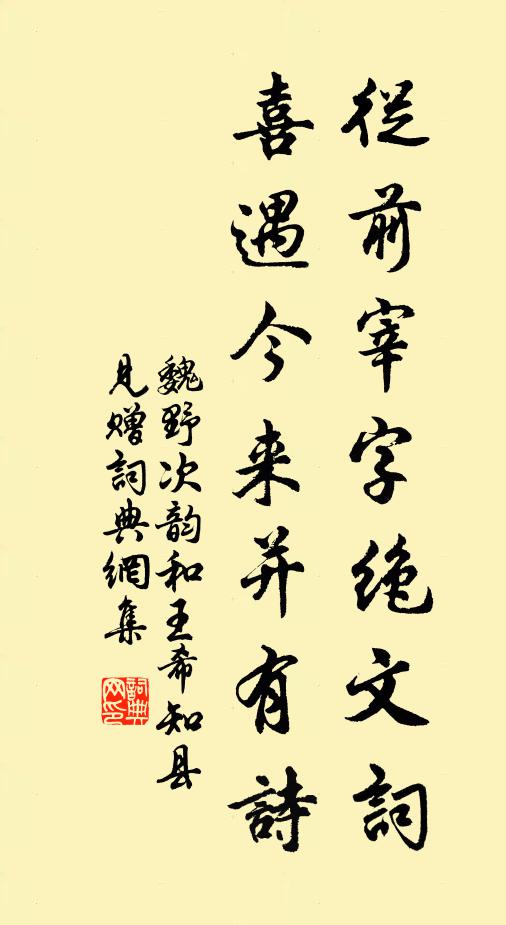 從前宰字绝文詞
喜遇今来并有詩
魏野次韵和王希知县
見赠詞典網集
詞典
网印